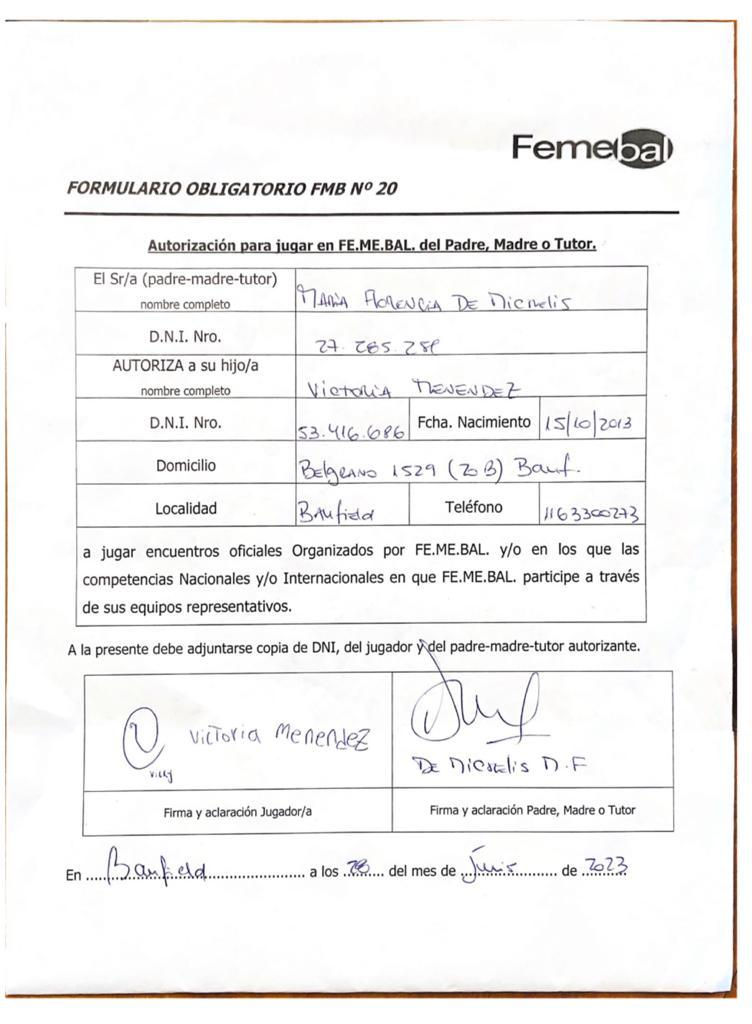 Femebal
FORMULARIO OBLIGATORIO FMB Nº 20
Autorización para jugar en FE.ME.BAL. del Padre, Madre o Tutor.
El Sr/a (padre-madre-tutor)
nombre completo
MARIA FLORENCIA DE Michelis
D.N.I. Nro.
AUTORIZA a su hijo/a
nombre completo
VICTORIA MENENDEZ
D.N.I. Nro. 53.416.686 Fcha. Nacimiento 15/10/2013
Domicilio Belgrano 1529 (20B) Banf.
Localidad Banfield Teléfono 1163300273
a jugar encuentros oficiales Organizados por FE.ME.BAL. y/o en los que las
competencias Nacionales y/o Internacionales en que FE.ME.BAL. participe a través
de sus equipos representativos.
A la presente debe adjuntarse copia de DNI, del jugador y del padre-madre-tutor autorizante.
Victoria Menendez
Vicky
De Michelis M.F
Firma y aclaración Jugador/a
Firma y aclaración Padre, Madre o Tutor
En Banfield a los 28 del mes de Junio de 2023